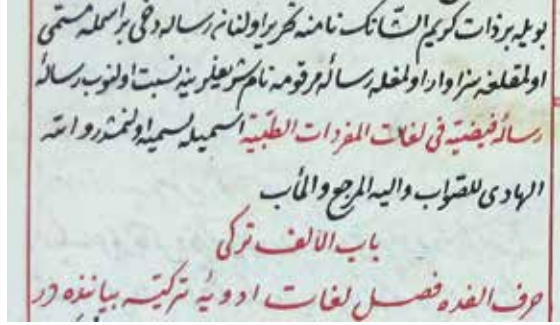 بویله بر ذات کریم الشانک نامنه تحریر اولنان رساله دخی بر اسمله مسمی
اولمقلغه سزاوار اولمغله رسالۀ مرقومه نام شریفلرینه نسبت اولنوب رسالۀ
رسالۀ فیضیه فی لغات المفردات الطبیه اسمیله تسمیه اولنمشدر و الله
الهادی للصواب والیه المرجع والمأب
باب الالف ترکی
حرف الفده فصل لغات ادویۀ ترکیه بیاننده در